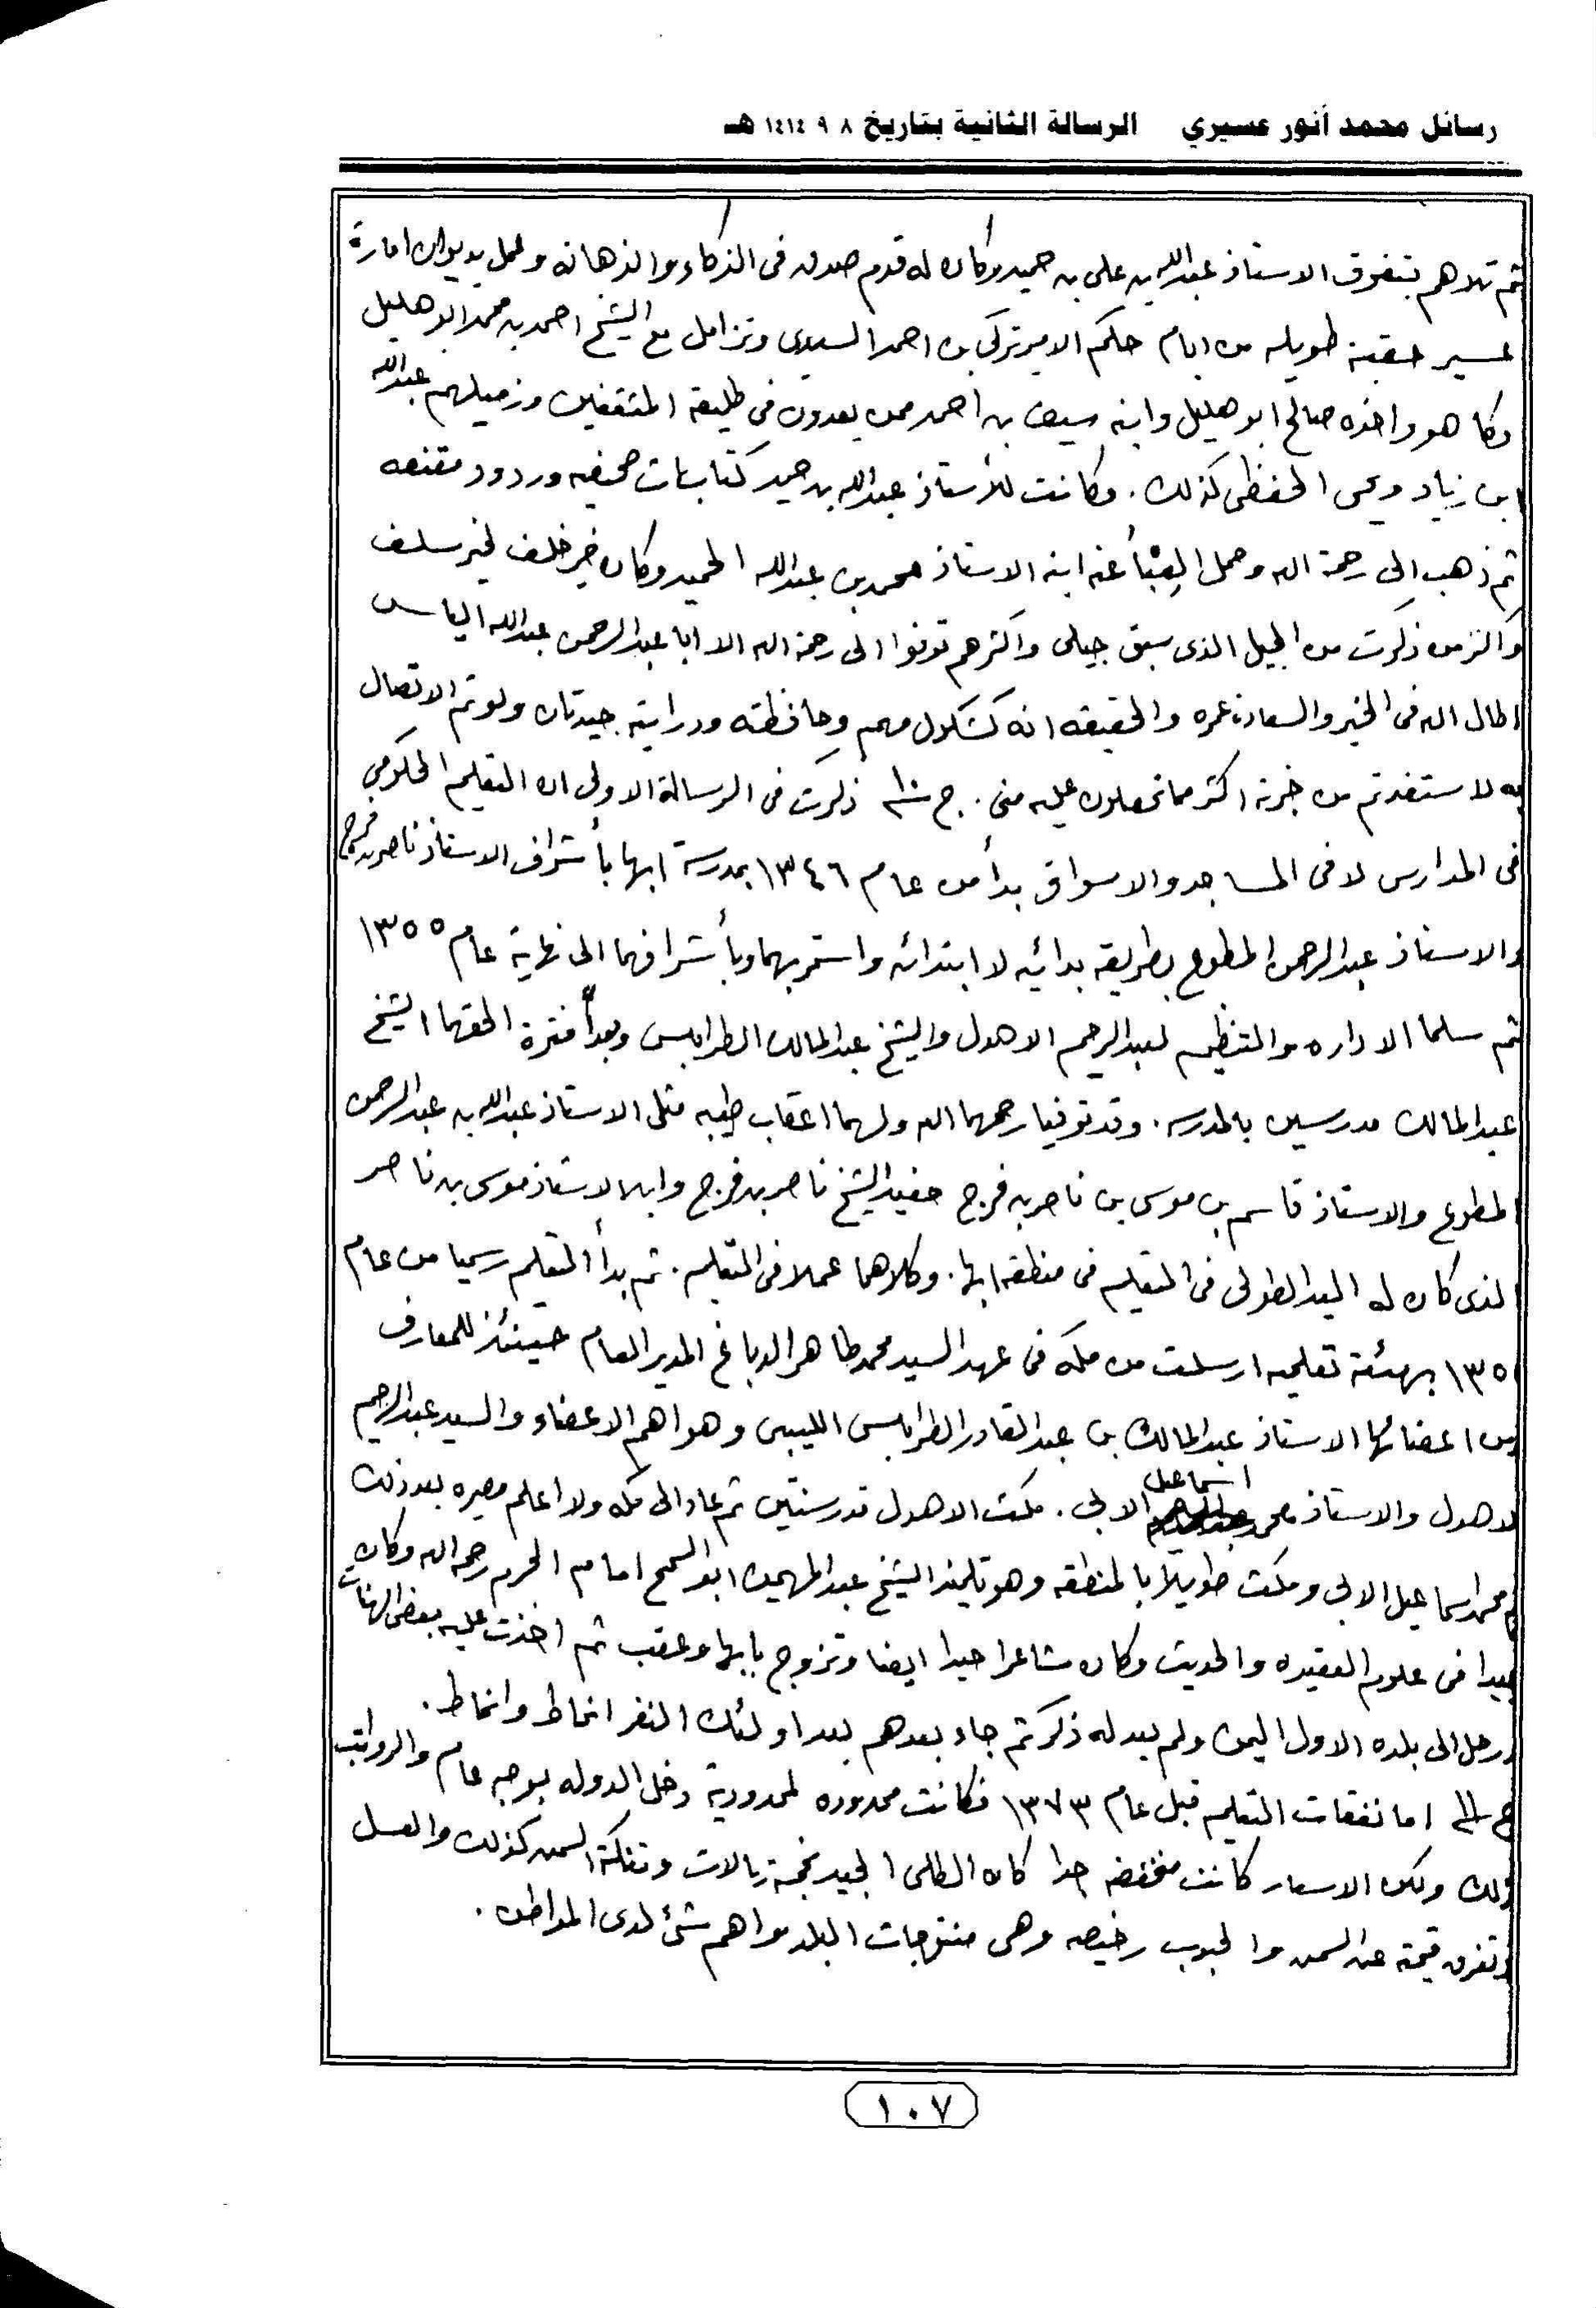 رسائل محمد أنور عسيري الرسالة الثانية بتاريخ ٨ ٩ ١٤١٤ هـ
ثم تلاهم بتفوق الاستاذ عبدالله بن علي بن حميد وكان له قدم صدق في الذكاء والذهانه وعمل بديوان امارة
عسير حقبة طويله من ايام حكم الامير تركي بن احمد السديري وتزامل مع الشيخ احمد بن محمد ابو هليل
وكا هو واخوه صالح ابو هليل وابنه سيف بن احمد ممن يعدون في طليعة المثقفين وزميلهم عبدالله
ابن زياد ويحي الحفظي كذلك . وكانت للأستاذ عبدالله بن حميد كتابات صحفيه وردود مقنعه
ثم ذهب إلى رحمة الله وحمل العِبْأ عنه ابنه الاستاذ محمد بن عبدالله الحميد وكان خير خلف لخير سلف
وأكثر من ذكرت من الجيل الذي سبق جيلي واكثرهم توفوا الى رحمة الله الا ابا عبدالرحمن عبدالله الياس
اطال الله في الخير والسعادة عمره والحقيقه انه كشكول مهم وحافظته ودرايته جيدتان ولو تم الاتصال
به لاستفدتم من خبرته اكثر مما تحصلون عليه مني . ج ١٠ ذكرت في الرسالة الاولى ان التعليم الحكومي
في المدارس لا في المساجد والاسواق بدأ من عام ١٣٤٦ بمدرسة ابها بأشراف الاستاذ ناصر بن فرج
والاستاذ عبدالرحمن المطوع بطريقه بدائيه لا ابتدائه واستمر بهما وبأشرافهما الى نهاية عام ١٣٥٥
ثم سلما الاداره والتنظيم لعبدالرحيم الاهدل والشيخ عبدالمالك الطرابلسي وبعد فترة الحقهما الشيخ
عبدالمالك مدرسين بالمدرسه . وقد توفيا رحمهما الله ولهما اعقاب طيبه مثل الاستاذ عبدالله بن عبدالرحمن
المطوع والاستاذ قاسم بن موسى بن ناصر بن فرج حفيد الشيخ ناصر بن فرج وابن الاستاذ موسى بن ناصر
الذي كان له اليد الطولى في التعليم في منطقه ابها . وكلاهما عملا في التعليم . ثم بدأ التعليم رسميا من عام
١٣٥ بهئية تعلميه ارسلت من مكه في عهد السيد محمد طاهر الدباغ المدير العام حيننئذ للمعارف
من اعضائها الاستاذ عبدالمالك بن عبدالقادر الطرابلسي الليبي وهو اهم الاعضاء والسيد عبدالرحيم
لاهدل والاستاذ محمد اسماعيل الابي . مكث الاهدل قدر سنتين ثم عاد الى مكه ولا اعلم مصيره بعد ذلك
ثم محمد اسماعيل الابي ومكث طويلاً بالمنطقه وهو تلميذ الشيخ عبدالمهيمن ابو السمح امام الحرم رحمه الله وكان
جيدا في علوم العقيده والحديث وكان شاعرا جيدا ايضا وتزوج بابها وعقب ثم اخذت عليه بعض الهنات
ورحل الى بلده الاول اليمن ولم يعد له ذكر ثم جاء بعدهم بعد اولئك النفر انماط وانماط .
ج ١١ اما نفقات التعليم قبل عام ١٣٧٣ فكانت محدوده لمحدودية دخل الدوله بوجه عام والرواتب
كذلك ولكن الاسعار كانت منخفضه جدا كان الطلي الجيد بخمسة ريالات وتنكة السمن كذلك والعسل
وتفرق قيمته عن السمن والحبوب رخيصه وهي منتوجات البلد واهم شئ لدى المواطن .
١٠٧